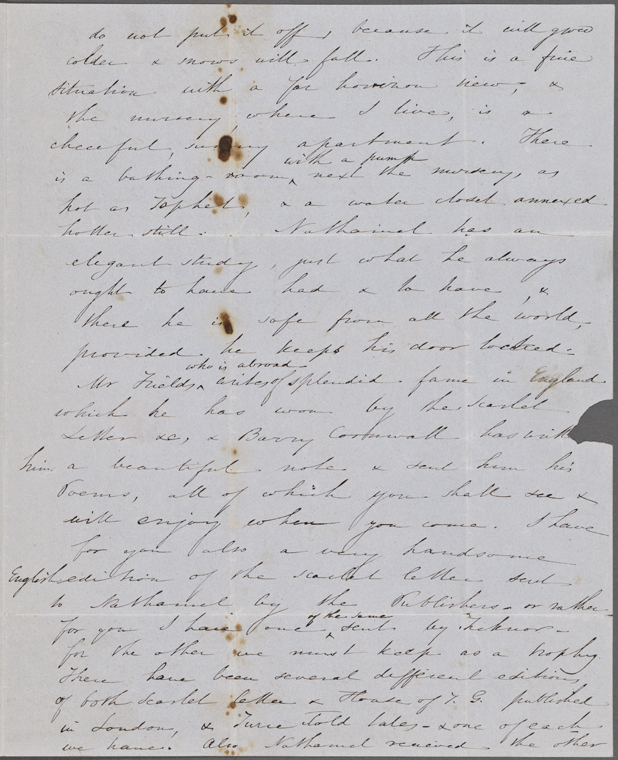 do not put it off, because it will grow
colder & snows will fall. This is a fine
situation with a far horizon view, &
the nursery, where I live, is a
cheerful, sunny apartment. There
with a pump
is a bathing-room, next the nursery, as
hot as Tophet, & a water closet annexed
hotter still. Nathaniel has an
elegant study, just what he always
ought to have had & to have, &
there he is safe from all the world,
provided he keeps his door locked.
who is abroad
Mr Fields, writes of splendid fame in England
which he has won by the Scarlet
Letter &c, & Barry Cornwall has
him a beautiful note & sent him his
Poems, all of which you shall see &
will enjoy when you come. I have
for you also a very handsome
English edition of the Scarlet Letter sent
to Nathaniel by the Publishers - or rather
of the same
for you I have one sent by Ticknor -
for the other we must keep as a trophy
There have been several different editions
of both Scarlet Letter & House of 7 G. published
in London, & Twice Told Tales - & one of each
we have. Also Nathaniel received the other